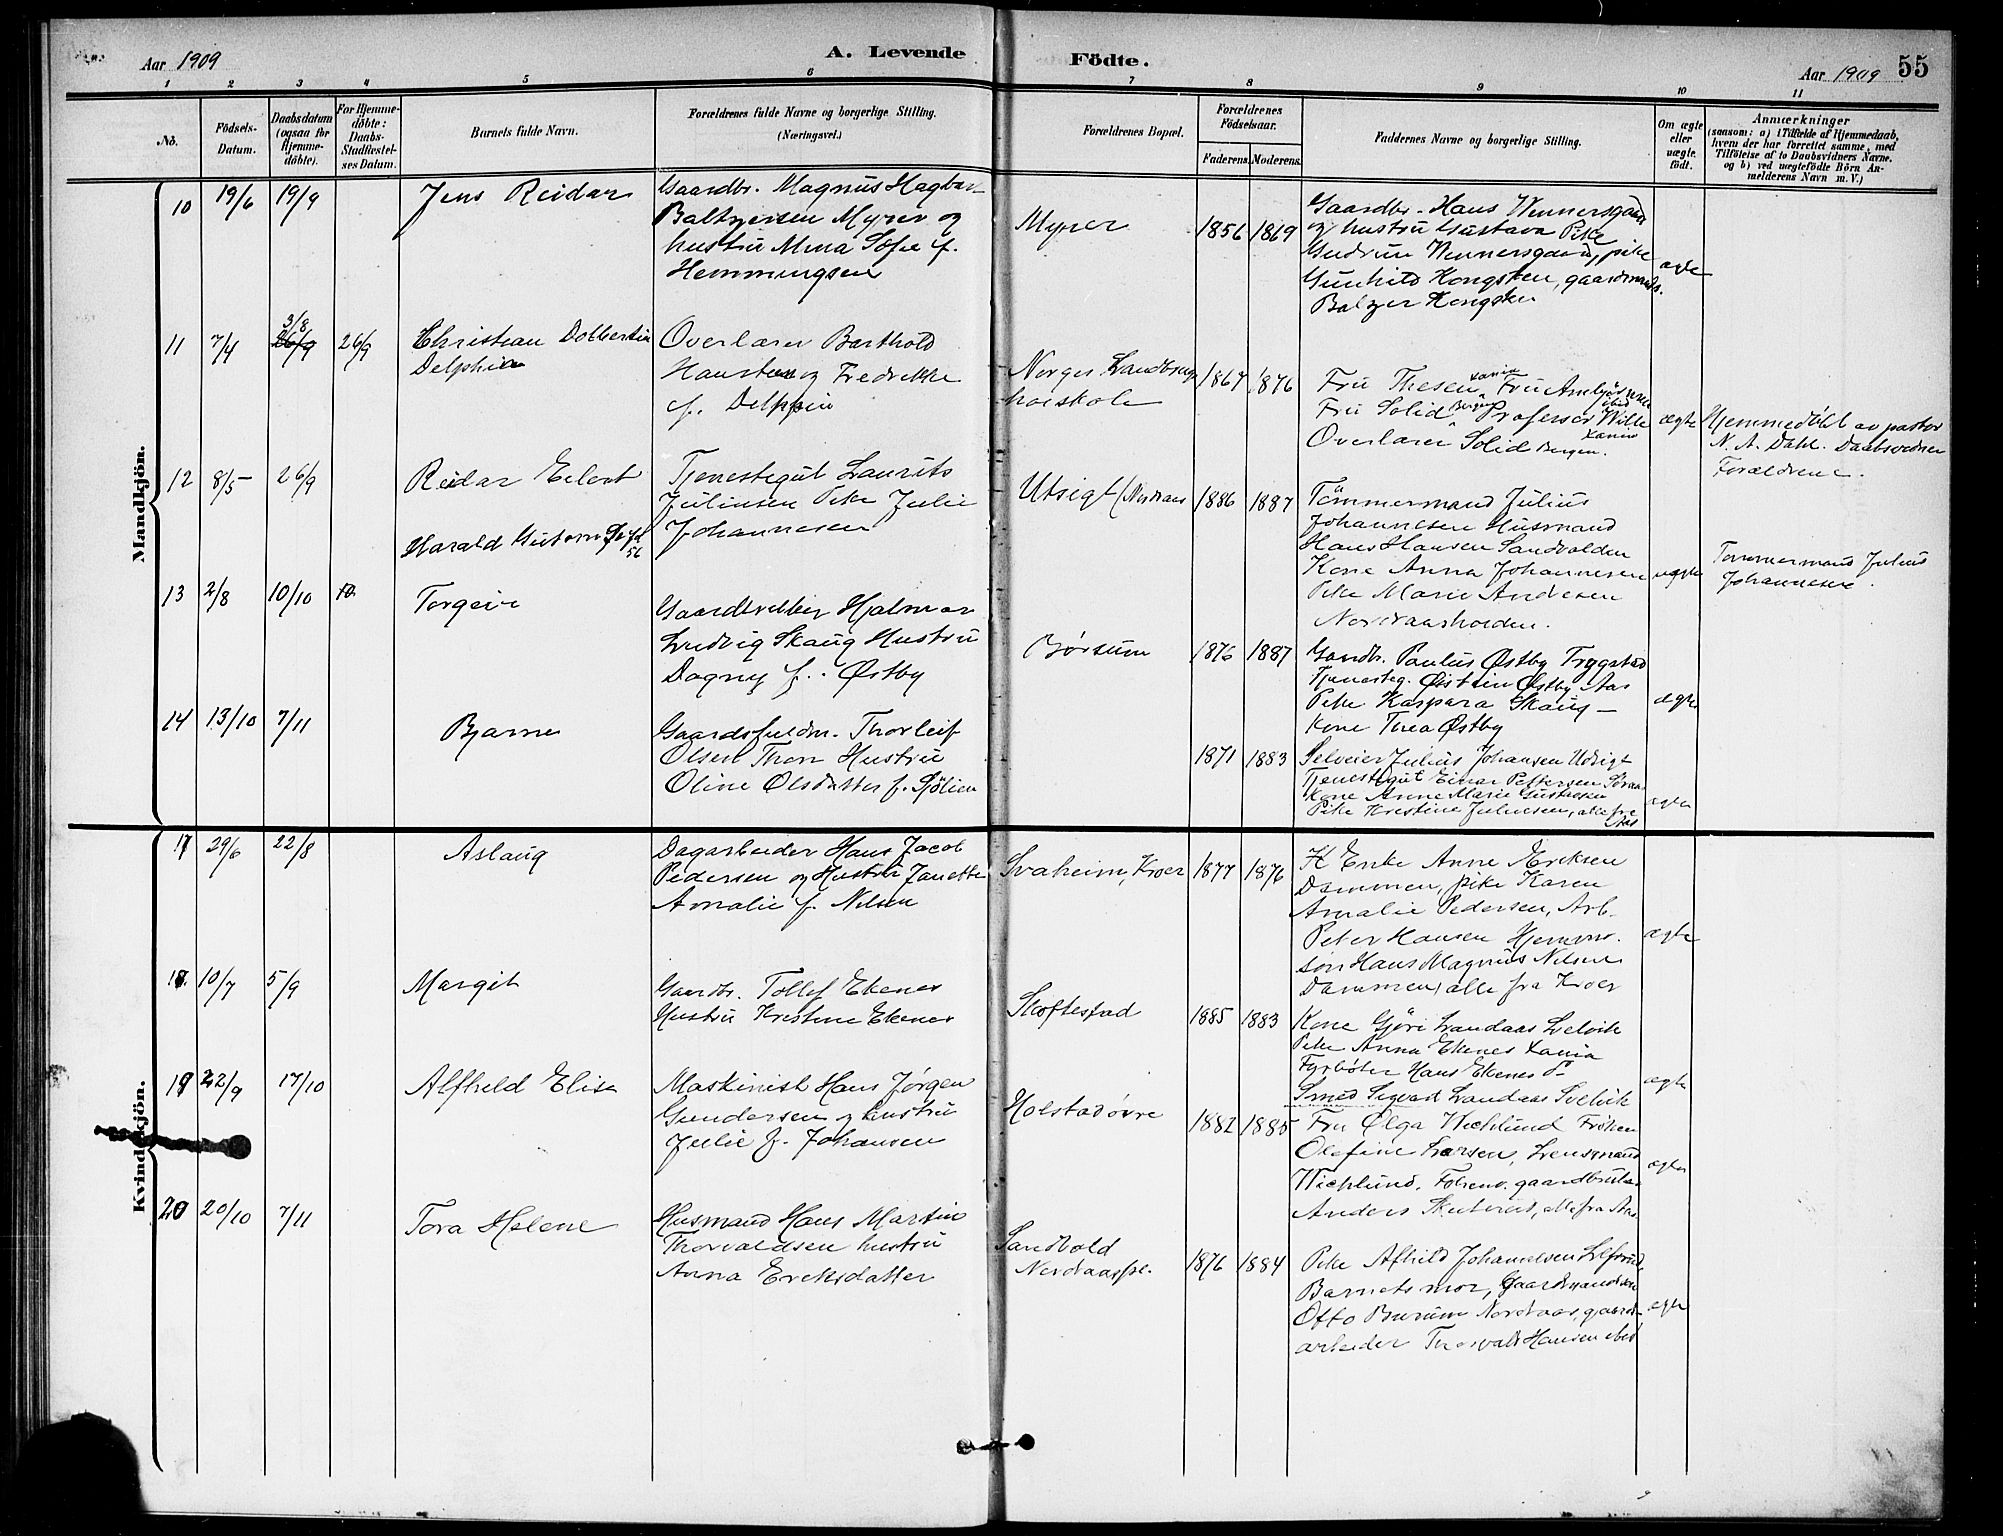 Aar 1909
A. Levende
Födte.
Aar 1909
55
1 2 3 4 5 6 7 8 9 10 11
No.
Födsels-
Datum.
Daabsdatum
(ogsaa for
Hjemme-
döbte).
For Hjemme-
döbte:
Daabs-
Stadfæstel-
ses Datum.
Barnets fulde Navn.
Forældrenes fulde Navne og borgerlige Stilling.
(Næringsvei.)
Forældrenes Bopæl.
Forældrenes
Födselsaar.
Faderens.
Moderens.
Faddernes Navne og borgerlige Stilling.
Om ægte
eller
uægte
födt.
Anmærkninger
(saasom: a) i Tilfælde af Hjemmedaab,
hvem der har forrettet samme, med
Tilföielse af to Daabsvidners Navne.
og b) ved uægtefödte Börn An-
melderens Navn m. V.)
Mandkjön.
10 19/6 19/9
Jens Reidar
Gaardbr. Magnus Hagbart
Baltzersen Myrer og
hustru Mina Sofie f.
Hemmingsen
Myrer
1856 1869
Gaardbr. Hans Wennersgaard
og hustru Gustava Pike
Gudrun Wennersgaard, pike
Gunhild Kongsten, gaardmands.
Balzer Kongsten
ægte
11 7/4 3/8
26/9
26/9
Christian Dolbertin
Delphin
Overlærer Barthold
Hansteen og Fredrikke
f. Delphin
Norges Landbrugs
høiskole
1867 1876
Fru Thesen, Xania Fru
Fru Solid Bergen Professor Wille
Xania
Overlærer Solid Bergen.
ægte
Hjemmedøbt av pastor
N. A. Dahl. Daabsvidner
Forældrene.
12 8/5 26/9
Reidar Eilert
Harald Gutorm
56
Tjenestegut Laurits
Juliusen Pike Julie
Johannesen
Utsigt (Nordaas
1886 1887
Tömmermand Julius
Johannesen Husmand
Hans Hansen Sandvolden
Kone Anna Johannesen
Pike Marie Andersen
Nordaasholden.
uægte
Tømmermand Julius
Johannesen.
13 2/8 10/10 10
Torgeir
Gaardbr. Hjalmar
Ludvig Skaug Hustru
Dagny f. Østby
Børsum
1876 1887
Gaardbr. Paulus Østby Trygstad
Tjenesteg. Øistein Østby Aas
Pike Kaspara Skaug —
Kone Thea Østby
ægte
14 13/10 7/11
Bjarne
Gaardsfuldm. Thorleif
Olsen Thon Hustru
Oline Olsdatter f. Sjölien
1871 1883
Selveier Julius Johansen Udsigt
Tjenestegut Einar Pettersen
Kone Anne Marie Gustavsen
Pike Kristine Juliusen, alle fra
Aas
ægte
Kvindekjön.
17 29/6 22/8
Aslaug
Dagarbeider Hans Jacob
Pedersen og Hustru Janette
Amalie f. Nilsen
Svaheim, Kroer
1877 1876
Enke Anne Eriksen
Dammen, pike Karen
Amalie Pedersen, Arb.
Peter Hansen Hjemmv.
søn Hans Magnus Nilsen
Dammen, alle fra Kroer
ægte
18 10/7 5/9
Margit
Gaardbr. Tollef Ekenes
Hustru Kristine Ekenes
Skoftestad
1885 1883
Kone Gjöri Landaas Selvik
Pike Anna Ekenes Xania
Fyrbøter Hans Ekenes
Smed Sigvart Landaas Svelvik
ægte
19 22/9 17/10
Alfhild Elise
Maskinist Hans Jørgen
Gundersen og hustru
Julie f. Johansen
Holstadøvre
1882 1885
Fru Olga Wichlund Frøken
Olefine Larsen, Lensmand
Wichlund, gaardbruker
Anders Skuterud, alle fra Aas.
ægte
20 20/10 7/11
Tora Helene
Husmand Hans Martin
Thorvaldsen hustru
Anna Eriksdatter
Sandvold
Nordaaspl.
1876 1884
Pike Alfhild Johannesen
Barnets mor, Gaardmandsøn
Otto Burum Nordaas, gaard-
arbeider Thorvald Hansen ibid
ægte